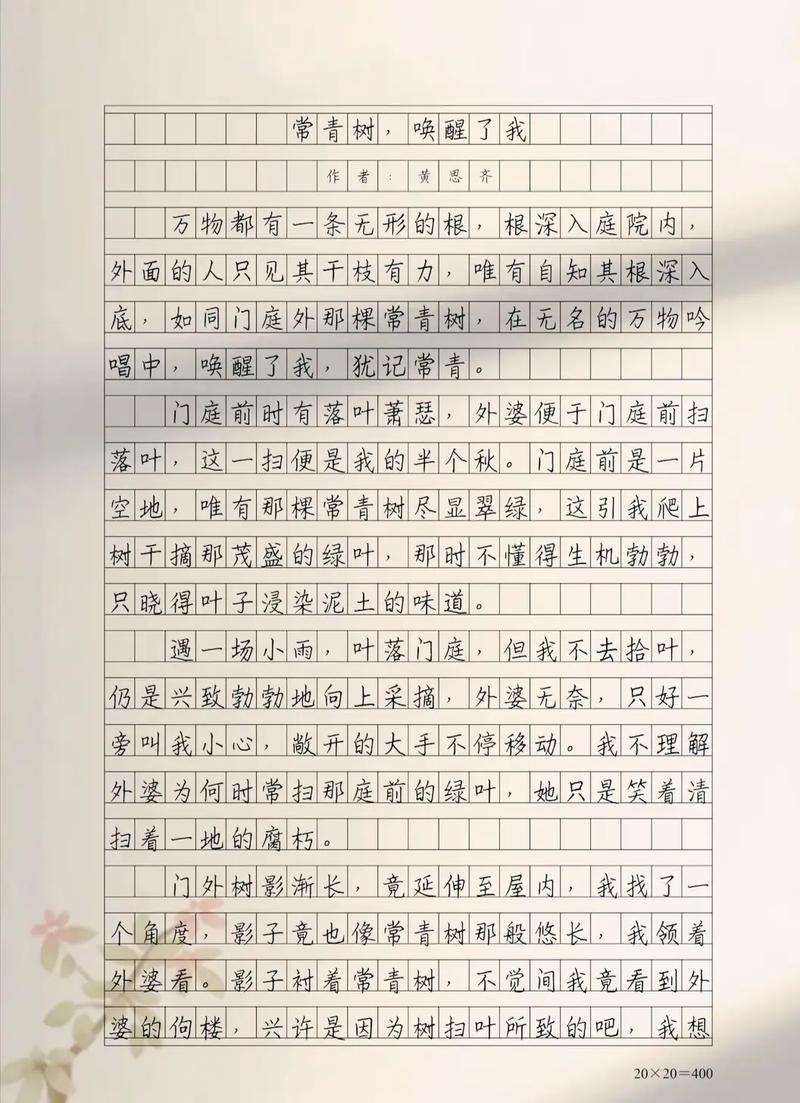 常青树，唤醒了我
作者：黄思齐
万物都有一条无形的根，根深入庭院内，
外面的人只见其干枝有力，唯有自知其根深入
底，如同门庭外那棵常青树，在无名的万物吟
唱中，唤醒了我，犹记常青。
门庭前时有落叶萧瑟，外婆便于门庭前扫
落叶，这一扫便是我的半个秋。门庭前是一片
空地，唯有那棵常青树尽显翠绿，这引我爬上
树干摘那茂盛的绿叶，那时不懂得生机勃勃，
只晓得叶子浸染泥土的味道。
遇一场小雨，叶落门庭，但我不去拾叶，
仍是兴致勃勃地向上采摘，外婆无奈，只好一
旁叫我小心，敞开的大手不停移动。我不理解
外婆为何时常扫那庭前的绿叶，她只是笑着清
扫着一地的腐朽。
门外树影渐长，竟延伸至屋内，我找了一
个角度，影子竟也像常青树那般悠长，我领着
外婆看。影子衬着常青树，不觉间我竟看到外
婆的佝楼，兴许是因为树扫叶所致的吧，我想
20×20=400